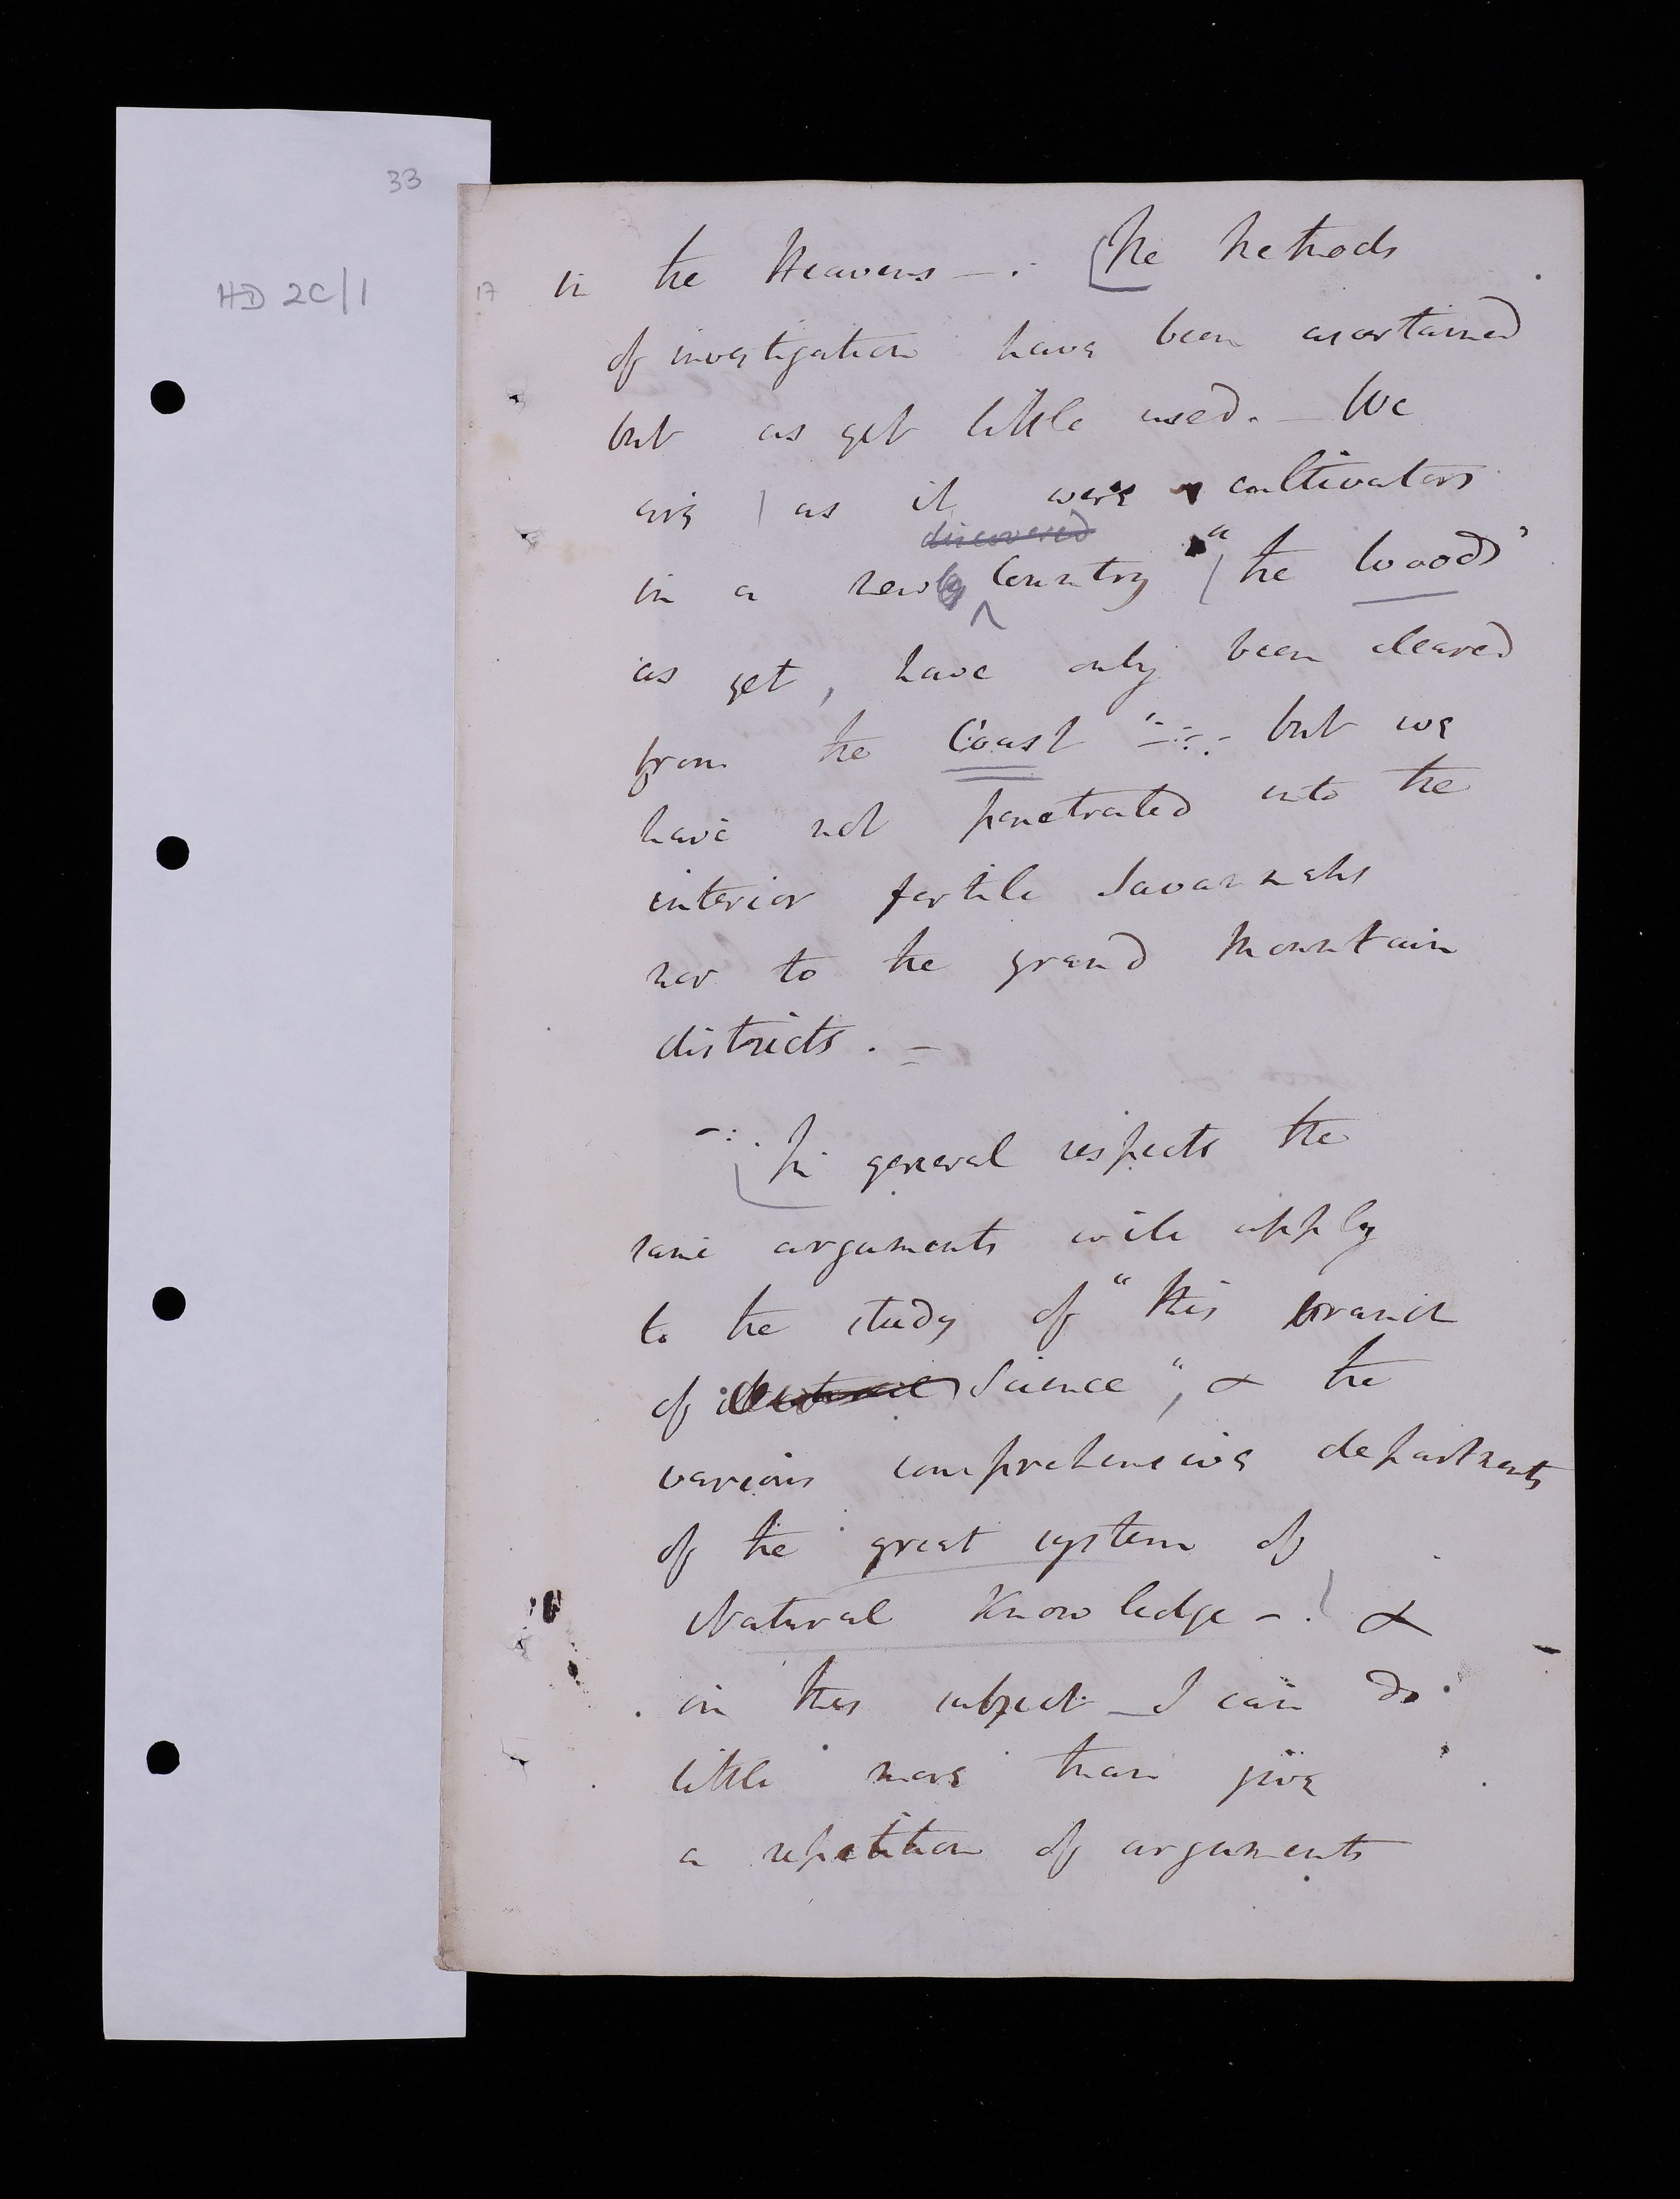 33
HD 2C/1
17
in the Heavens -. The Methods
of investigation have been ascertained
but as yet little used. - We
are as it were cultivators
discovered
in a newly Country "the Woods"
as yet, have only been cleared
from the Coast" -:- but we
have not penetrated into the
interior fertile Savannahs
nor to the grand Mountain
districts. -
-:. In general respects the
same arguments will apply
to the study of "this branch
of Science", & the
various comprehensive departments
of the great system of
Natural Knowledge -. &
in this subject - I can do
little more than give
a repetition of arguments